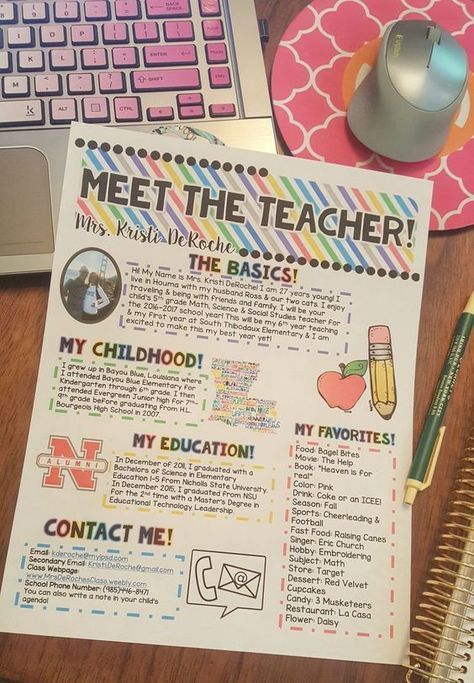 MEET THE TEACHER!
Mrs. Kristi DeRoche
THE BASICS!
Hi! My Name is Mrs. Kristi DeRoche! I am 27 years young! I
live in Houma with my husband Ross & our two cats. I enjoy
traveling & being with friends and family. I will be your
child's 5th grade Math, Science & Social Studies teacher for
the 2016-2017 school year! This will be my 6th year teaching
& my first year at South Thibodaux Elementary & I am
excited to make this my best year yet!
MY CHILDHOOD!
I grew up in Bayou Blue, Louisiana where
I attended Bayou Blue Elementary for
Kindergarten through 6th grade. I then
attended Evergreen Junior high for 7th-
9th grade before graduating from H.L.
Bourgeois High School in 2007.
MY EDUCATION!
N
ALUMNI
In December of 2011, I graduated with a
Bachelors of Science in Elementary
Education 1-5 from Nicholls State University.
In December 2015, I graduated from NSU
for the 2nd time with a Master's Degree in
Educational Technology Leadership.
CONTACT ME!
Email: kderoche@mylpsd.com
Secondary Email: KristiDeRoche@gmail.com
Class Webpage:
www.MrsDeRochesClass.weebly.com
School Phone Number: (985)446-8471
You can also write a note in your child's
agenda!
MY FAVORITES!
Food: Bagel Bites
Movie: The Help
Book: "Heaven is for
real"
Color: Pink
Drink: Coke or an ICEE!
Season: Fall
Sports: Cheerleading &
Football
Fast Food: Raising Canes
Singer: Eric Church
Hobby: Embroidering
Subject: Math
Store: Target
Dessert: Red Velvet
Cupcakes
Candy: 3 Musketeers
Restaurant: La Casa
Flower: Daisy
BACK SPACE
ENTER
SHIFT